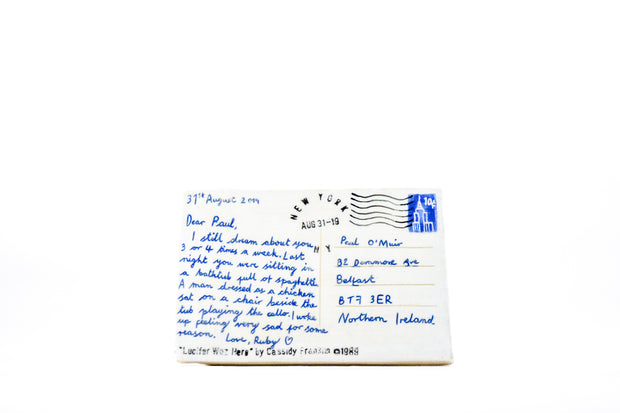 31st August 2019
Dear Paul,
I still dream about you
3 or 4 times a week. Last
night you were sitting in
a bathtub full of spaghetti.
A man dressed as a chicken
sat on a chair beside the
tub playing the cello. I woke
up feeling very sad for some
reason. Love, Ruby
NEW YORK
AUG 31-19
NY
10¢
Paul O'Muir
Ave
Belfast
BT7 3ER
Northern Ireland
"Lucifer Woz Here" by Cassidy ©1989